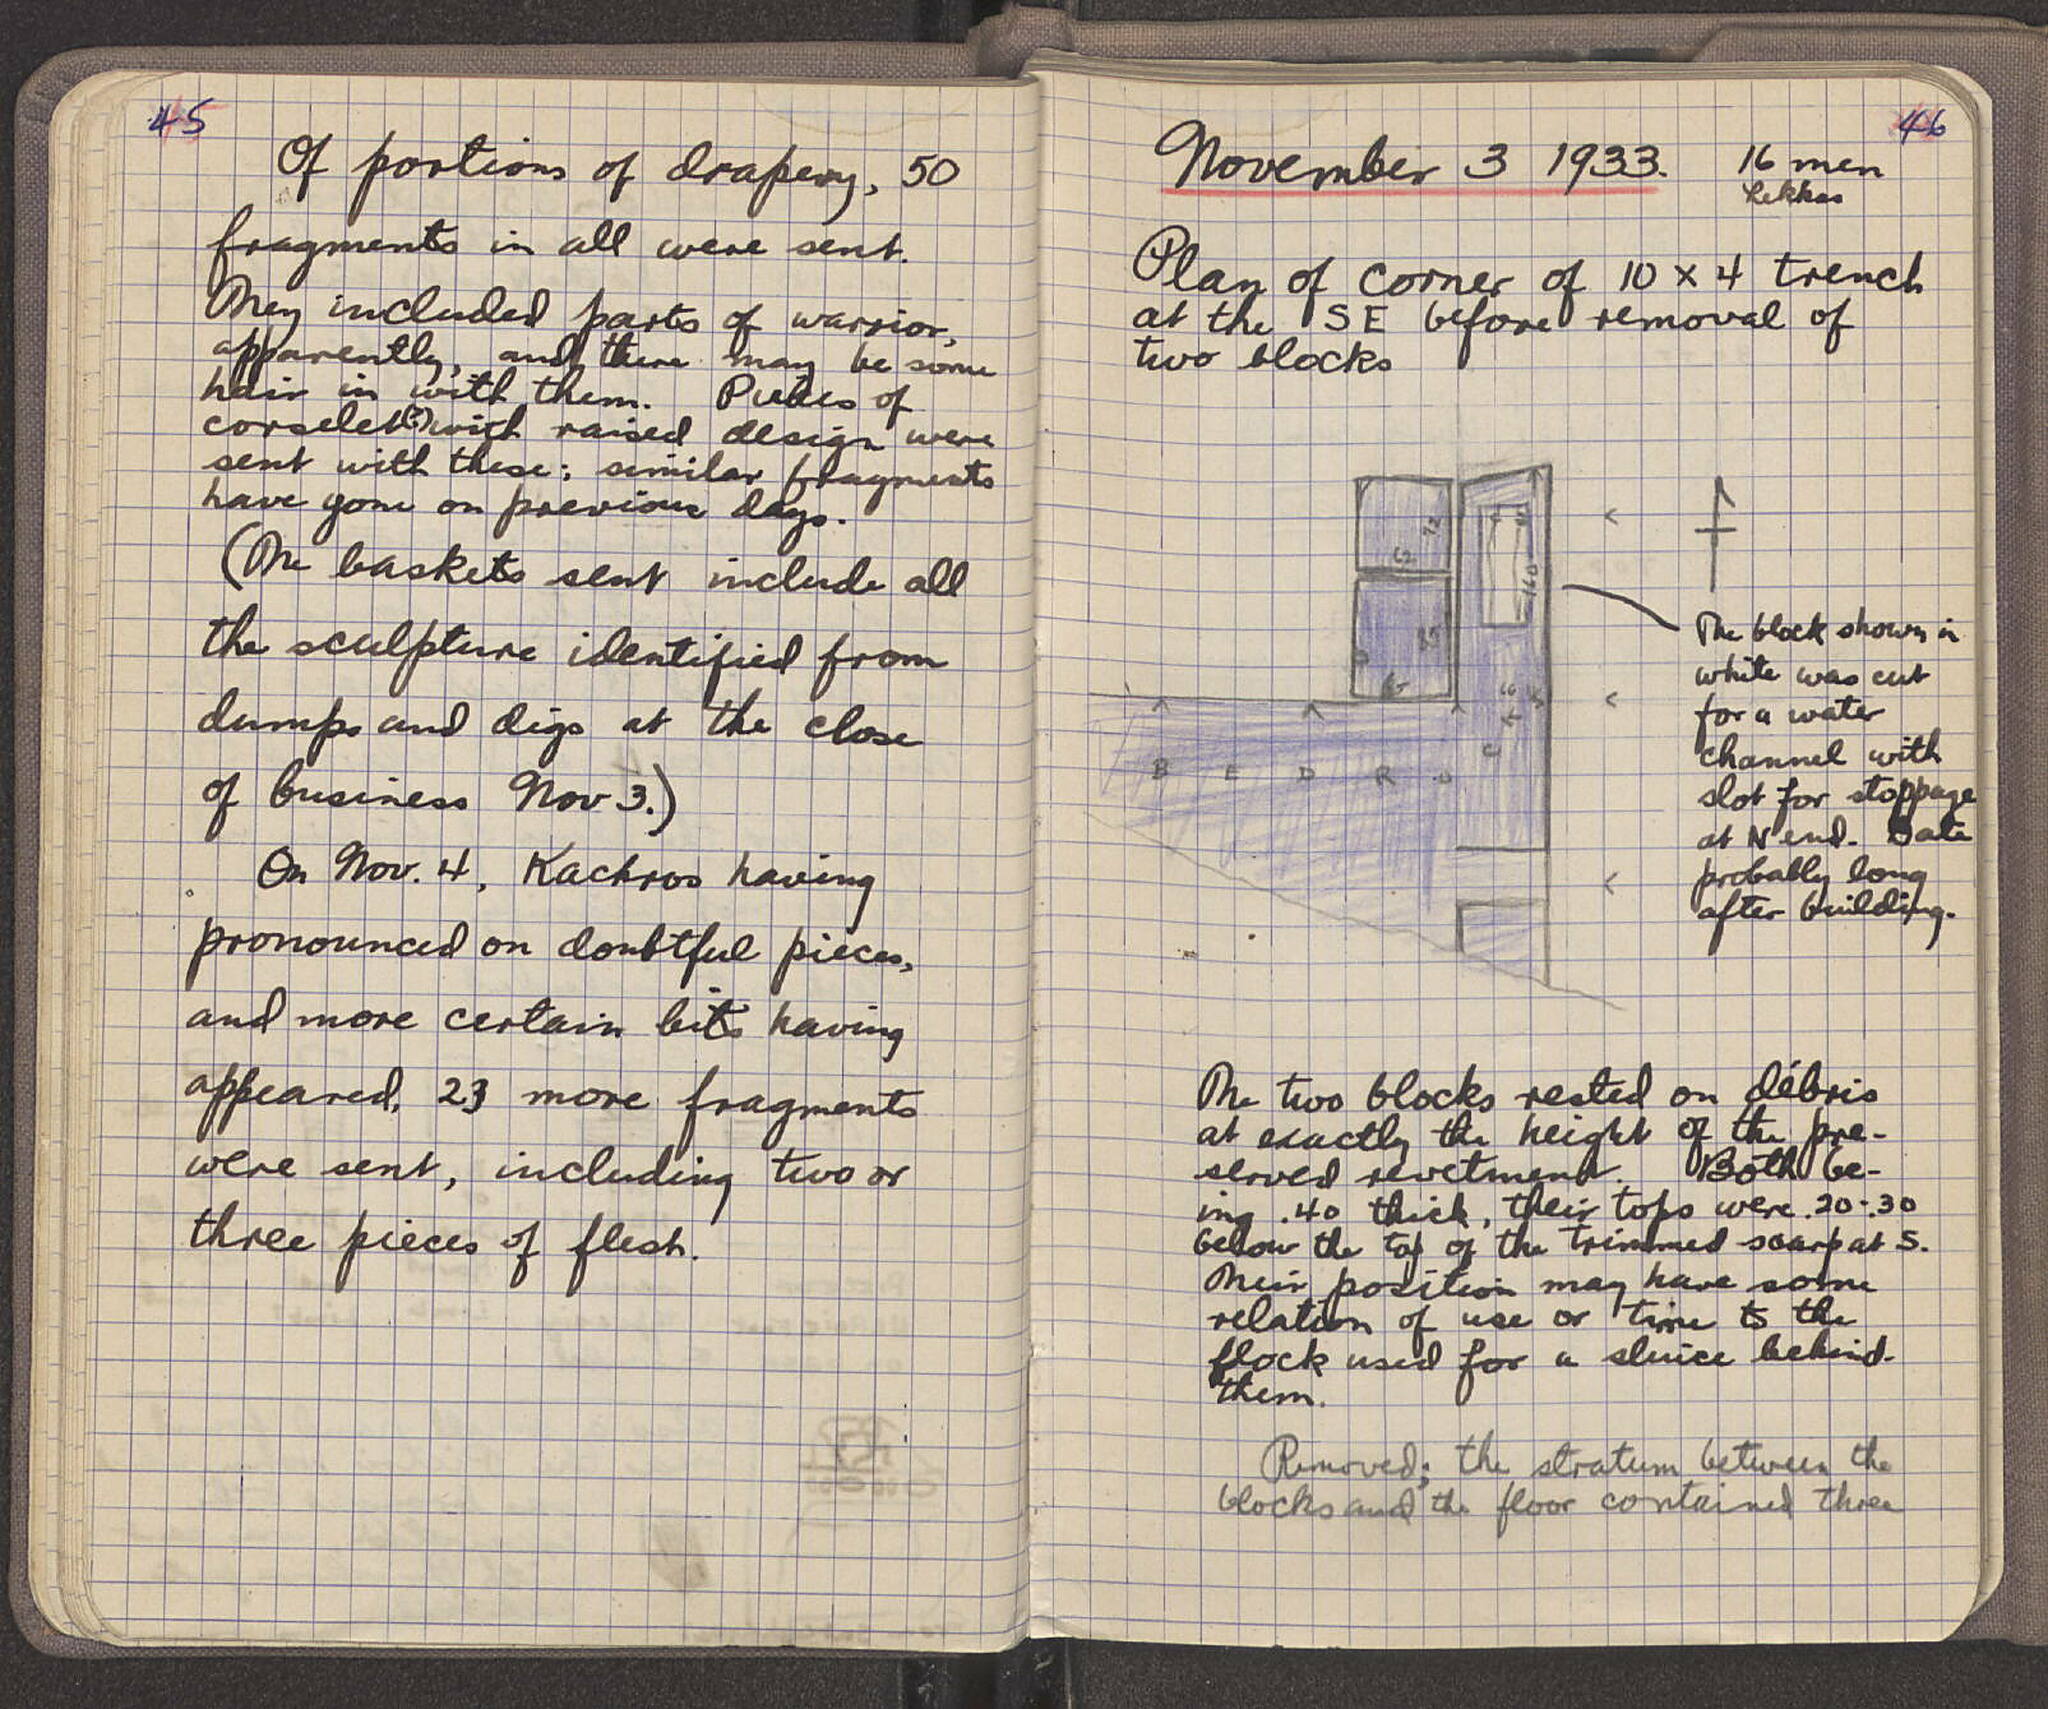 45
Of portions of drapery, 50
fragments in all were sent.
They included parts of warrior,
apparently, and there may be some
hair in with them. Pieces of
corselet(?) with raised design were
sent with these; similar fragments
have gone on previous days.
(The baskets sent include all
the sculpture identified from
dumps and digs at the close
of business Nov 3.)
On Nov. 4, Kachros having
pronounced on doubtful pieces,
and more certain bits having
appeared, 23 more fragments
were sent, including two or
three pieces of flesh.
46
November 3 1933. 16 men
Lekkas
Plan of corner of 10 x 4 trench
at the SE before removal of
two blocks
72
62
160
85
65
B E D R O C K
The block shown in
white was cut
for a water
channel with
slot for stoppage
at N end. Date
probably long
after building.
The two blocks rested on débris
at exactly the height of the pre-
served revetment. Both be-
ing .40 thick, their tops were .20-.30
below the top of the trimmed scarp at S.
Their position may have some
relation of use or time to the
block used for a sluice behind
them.
Removed; the stratum between the
blocks and the floor contained three